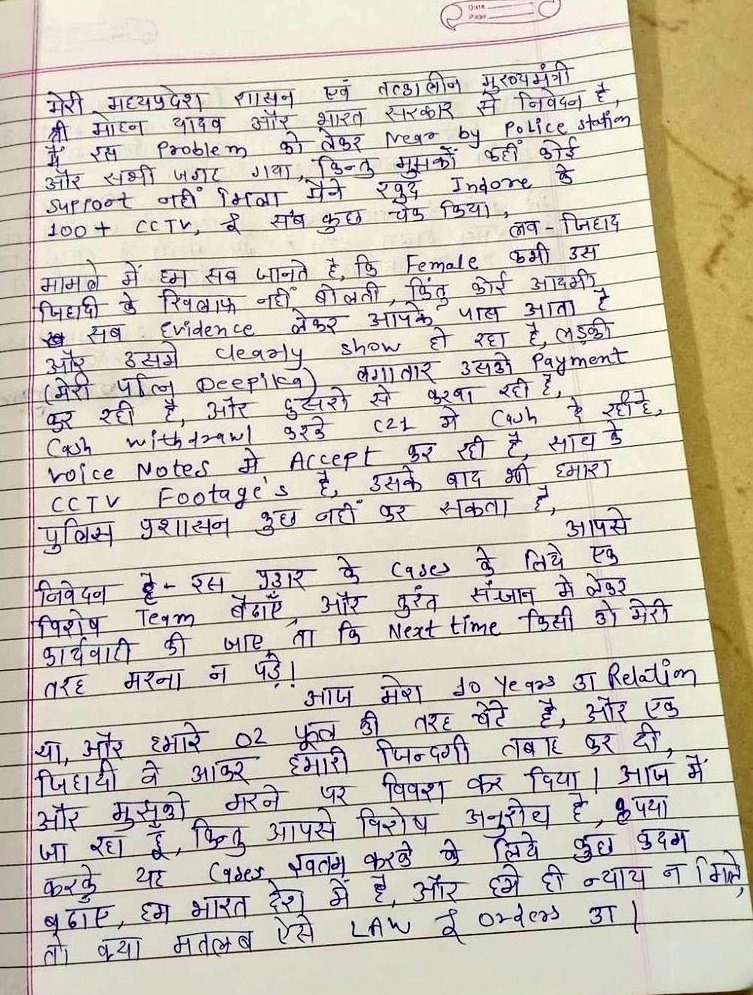 Date
Page
मेरी मध्यप्रदेश शासन एवं तत्कालीन मुख्यमंत्री
श्री मोहन यादव और भारत सरकार से निवेदन है,
मैं इस Problem को लेकर Near by Police station
और सभी जगह गया, किन्तु मुझकों कहीं कोई
Support नहीं मिला मैंने खुद Indore के
100+ CCTV, ई सब कुछ चेक किया,
लव - जिहाद
मामले में हम सब जानते है, कि Female कभी उस
जिहादी के खिलाफ नहीं बोलती, किंतु कोई आदमी
सब Evidence लेकर आपके पास आता है
और उसमें clearly show हो रहा है, लड़की
(मेरी पत्नि Deepika) लगातार उसको Payment
कर रही है, और दुसरो से करवा रही है,
Cash withdrawl करके C21 में Cash दे रही है,
Voice Notes में Accept कर रही है, साथ के
CCTV Footage's है, उसके बाद भी हमारा
पुलिस प्रशासन कुछ नहीं कर सकता है,
आपसे
निवेदन है - इस प्रकार के Cases के लिये एक
विशेष Team बैठाएँ, और तुरंत संज्ञान में लेकर
कार्यवाटी की जाए ता कि Next time किसी को मेरी
तरह मरना न पड़े!
आज मेरा 10 Years का Relation
था, और हमारे 02 फूल की तरह बेटे है, और एक
जिहादी ने आकर हमारी जिन्दगी तबाह कर दी,
और मुझको मरने पर विवश कर दिया। आज मैं
जा रहा हूँ, किन्तु आपसे विशेष अनुरोध है, कृपया
करके यह Cases खतम करके के लिये कुछ कदम
बढाए, हम भारत देश में है, और हमें ही न्याय न मिले,
तो क्या मतलब ऐसे LAW ई Orders का।